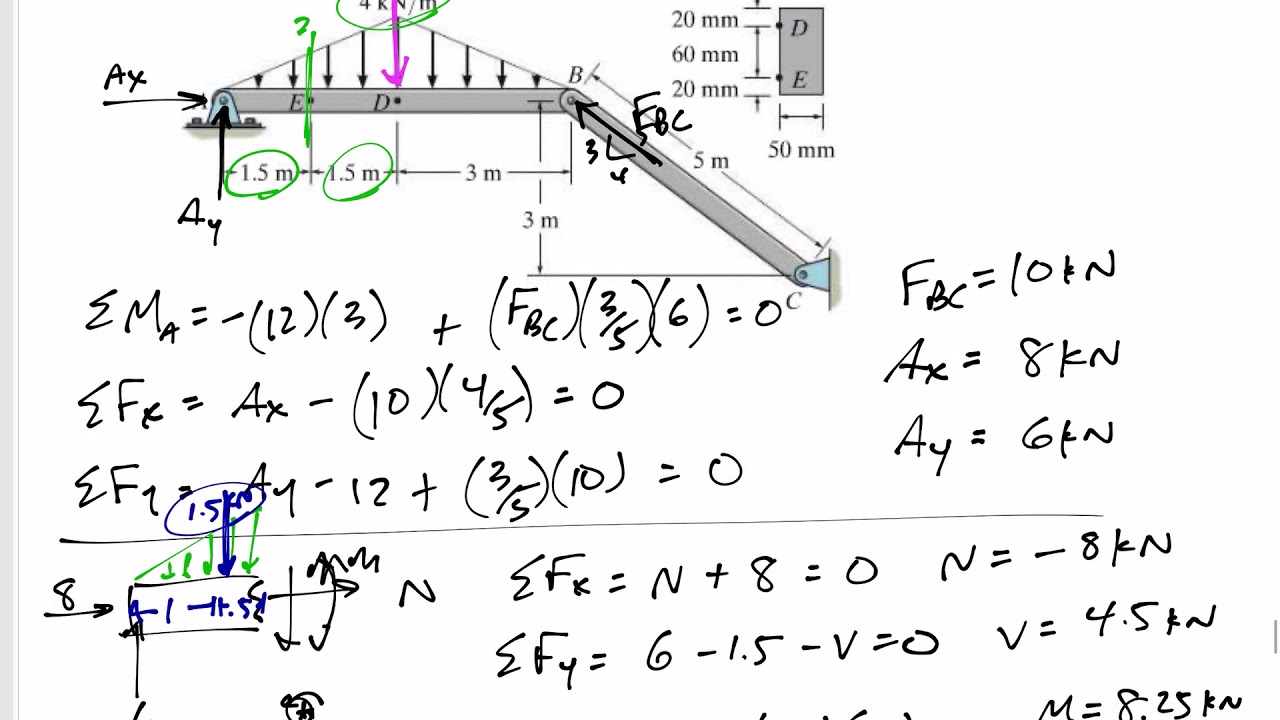 4 kN/m
20 mm
D
60 mm
E
20 mm
50 mm
Ax
A
E
D
B
F_BC
3
4
5 m
1.5 m
1.5 m
3 m
Ay
3 m
C
ΣM_A = -(12)(3) + (F_BC)(3/5)(6) = 0
F_BC = 10 kN
ΣFx = Ax - (10)(4/5) = 0
Ax = 8 kN
ΣFy = Ay - 12 + (3/5)(10) = 0
Ay = 6 kN
1.5 kN
8
1
.5
N
ΣFx = N + 8 = 0
N = -8 kN
ΣFy = 6 - 1.5 - V = 0
V = 4.5 kN
M = 8.25 kN